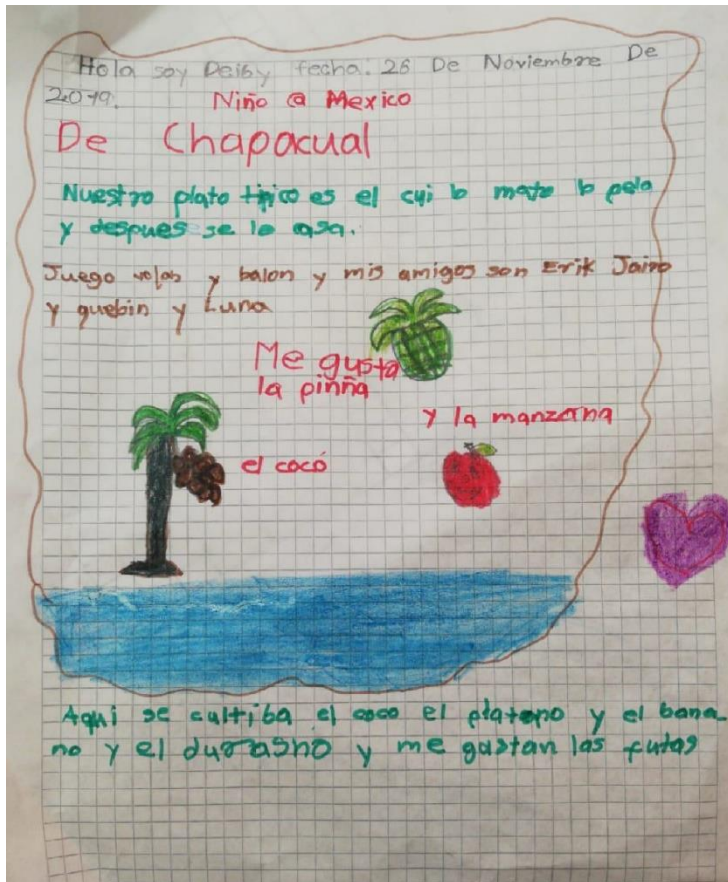 Hola soy Deiby fecha. 26 De Noviembre De
2019.
Niño @ Mexico
De Chapacual
Nuestro plato tipico es el cui lo mato lo pela
y despues se lo asa.
Juego volas y balon y mis amigos son Erik Jairo
y quebin y Luna
Me gusta
la pinña
y la manzana
el cocó
Aqui se cultiba el coco el platano y el bana-
no y el durasno y me gustan las futas